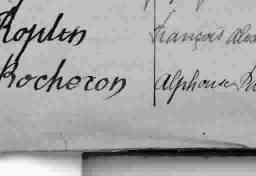 Koplin François Alex
Rocheron Alphonse R